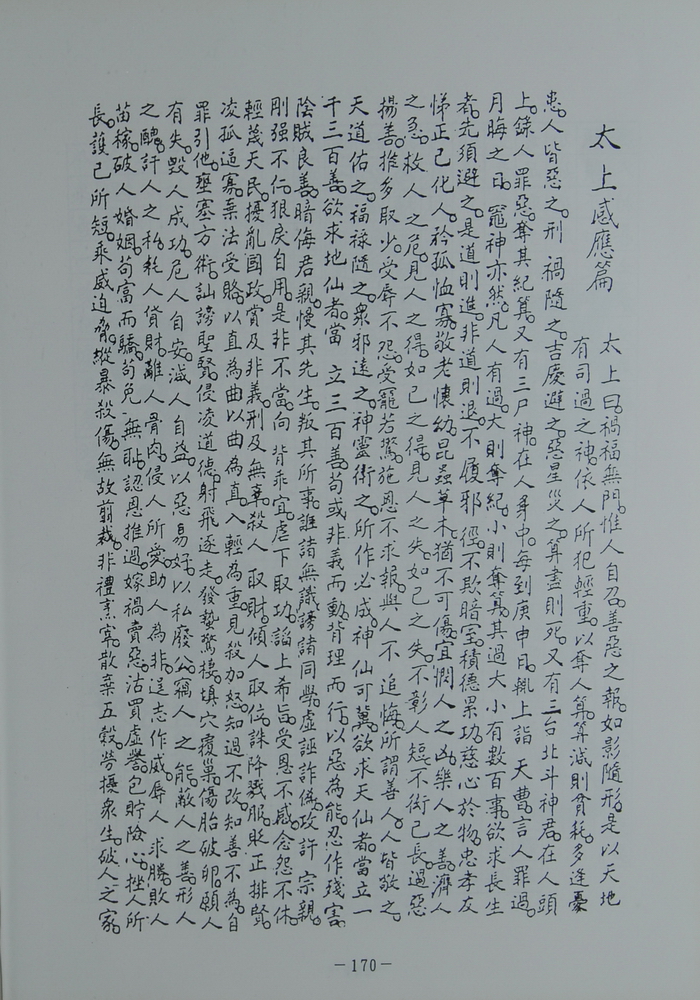 太上感應篇
太上曰。禍福無門。惟人自召。善惡之報。如影隨形。是以天地
有司過之神。依人所犯輕重。以奪人算。算減則貧耗。多逢憂
患。人皆惡之。刑禍隨之。吉慶避之。惡星災之。算盡則死。又有三台北斗神君。在人頭
上。錄人罪惡。奪其紀算。又有三尸神。在人身中。每到庚申日。輒上詣天曹。言人罪過。
月晦之日。竈神亦然。凡人有過。大則奪紀。小則奪算。其過大小。有數百事。欲求長生
者。先須避之。是道則進。非道則退。不履邪徑。不欺暗室。積德累功。慈心於物。忠孝友
悌。正己化人。矜孤恤寡。敬老懷幼。昆蟲草木。猶不可傷。宜憫人之凶。樂人之善。濟人
之急。救人之危。見人之得。如己之得。見人之失。如己之失。不彰人短。不衒己長。遏惡
揚善。推多取少。受辱不怨。受寵若驚。施恩不求報。與人不追悔。所謂善人。人皆敬之。
天道佑之。福祿隨之。眾邪遠之。神靈衛之。所作必成。神仙可冀。欲求天仙者。當立一
千三百善。欲求地仙者。當立三百善。苟或非義而動。背理而行。以惡為能。忍作殘害。
陰賊良善。暗侮君親。慢其先生。叛其所事。誑諸無識。謗諸同學。虛誣詐偽。攻訐宗親。
剛强不仁。狠戾自用。是非不當。向背乖宜。虐下取功。諂上希旨。受恩不感。念怨不休。
輕蔑天民。擾亂國政。賞及非義。刑及無辜。殺人取財。傾人取位。誅降戮服。貶正排賢。
凌孤逼寡。棄法受賂。以直為曲。以曲為直。入輕為重。見殺加怒。知過不改。知善不為。自
罪引他。壅塞方術。訕謗聖賢。侵凌道德。射飛逐走。發蟄驚棲。填穴覆巢。傷胎破卵。願人
有失。毀人成功。危人自安。減人自益。以惡易好。以私廢公。竊人之能。蔽人之善。形人
之醜。訐人之私。耗人貨財。離人骨肉。侵人所愛。助人為非。逞志作威。辱人求勝。敗人
苗稼。破人婚姻。苟富而驕。苟免無恥。認恩推過。嫁禍賣惡。沽買虛譽。包貯險心。挫人所
長。護己所短。乘威迫脅。縱暴殺傷。無故剪裁。非禮烹宰。散棄五穀。勞擾衆生。破人之家。
－170－